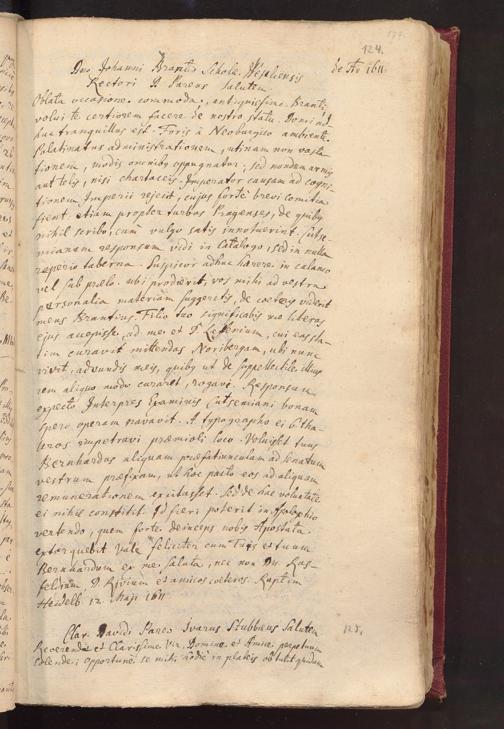 124.
Dno Johanni Brantio Scholæ Wesaliensis de Ao 1611.
Rectori D Pareus Salutem
Oblata occasione commoda, antiquissime Branti,
volui te certiorem facere de nostro statu. Domi ad
huc tranquillus est. Foris à Neoburgico ambiente
Palatinatus administrationem, utinam non vasta-
tionem, modis omnibus oppugnatur, sed nondum armis
aut telis, nisi chartaceis. Imperator causam ad cogni-
tionem Imperii rejecit, cujus fortè brevi comitia
fient etiam propter turbas Pragenses, de quibus
nihil scribo, cum vulgo satis innotuerint. Cutse-
mianam responsum vidi in Catalogo, sed in nulla
reperio taberna. Suspicor adhuc hærere in calamo
vel sub prælo. ubi prodierit, vos mihi ad vestra
personalia materiam suggeretis, de cœteris viderit
meus Brantius. Filio tuo significabis me literas
ejus accepisse, ad me et D. , cui eas sta-
tim curavi mittendas Noribergam, ubi nunc
vivit, adjunctis meis, quibus ut de suppellectile illius
rem aliquo modo curaret, rogavi. Responsum
expecto. Interpres Examinis Cutsemiani bonam
spero operam navavit. A typographo ei 6 tha-
leros impetravi præmioli loco. Voluisset tuus
Bernhardus aliquam præfatiunculam ad senatum
vestrum præfixam, ut hoc pacto eos ad aliquam
remunerationem excitasset. Sed de hac voluntate
ei nihil constitit. Id fieri poterit in Apologetico
vertendo, quem forte deinceps nobis Apostata
extorquebit. Vale feliciter cum Tuis et tuum
Bernhardum ex me saluta, nec non Dn. Ras-
feldium D Rivium et amicos cœteros. Raptim
Heidelb 12. Maji 1611
Clar. Davidi Pareo Ivarus Stubbæus Salutem 125.
Reverende et Clarissime Vir, Domine et Amice perpetuum
Colende; opportunè se mihi hodiè in plateis obtulit quidam